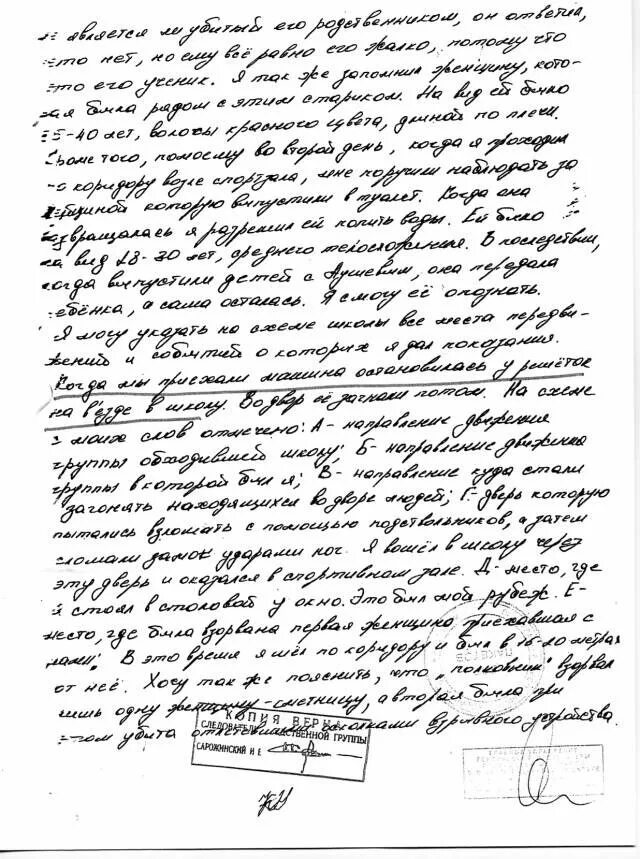 является ли убитый его родственником, он ответил,
что нет, но ему всё равно его жалко, потому что
это его ученик. Я так же запомнил женщину, кото-
ая была рядом с этим стариком. На вид ей было
5-40 лет, волосы красного цвета, длиной по плечи.
роме того, помоему во второй день, когда я проходил
по коридору возле спортзала, мне поручили наблюдать за
которую выпустили в туалет. Когда она
возвращалась я разрешил ей попить воды. Ей было
на вид 28-30 лет, среднего телосложения. В последствии,
когда выпустили детей с Аушевым, она передала
ебёнка, а сама осталась. Я смогу её опознать.
Я могу указать на схеме школы все места передви-
жений и событий о которых я дал показания.
Когда мы приехали машина остановилась у решёток
на въезде в школу. Во двор её загнали потом. На схеме
с моих слов отмечено: А- направление движения
группы обходившей школу; Б- направление движения
группы в которой был я; В- направление куда стали
загонять находящихся во дворе людей; Г- дверь которую
пытались взломать с помощью подствольников, а затем
сломали замок ударами ног. Я вошёл в школу через
эту дверь и оказался в спортивном зале. Д- место, где
я стоял в столовой у окно. Это был мой рубеж. Е-
место, где была взорвана первая женщина приехавшая с
нами. В это время я шёл по коридору и был в 15-20 метрах
от неё. Хочу так же пояснить, что "полковник" взорвал
лишь одну женщину-смертницу, а вторая была при
этом убита осколками взрывного устройства.
КОПИЯ ВЕРНА
СЛЕДОВАТЕЛЬ СЛЕДСТВЕННОЙ ГРУППЫ
САРОЖИНСКИЙ И Е